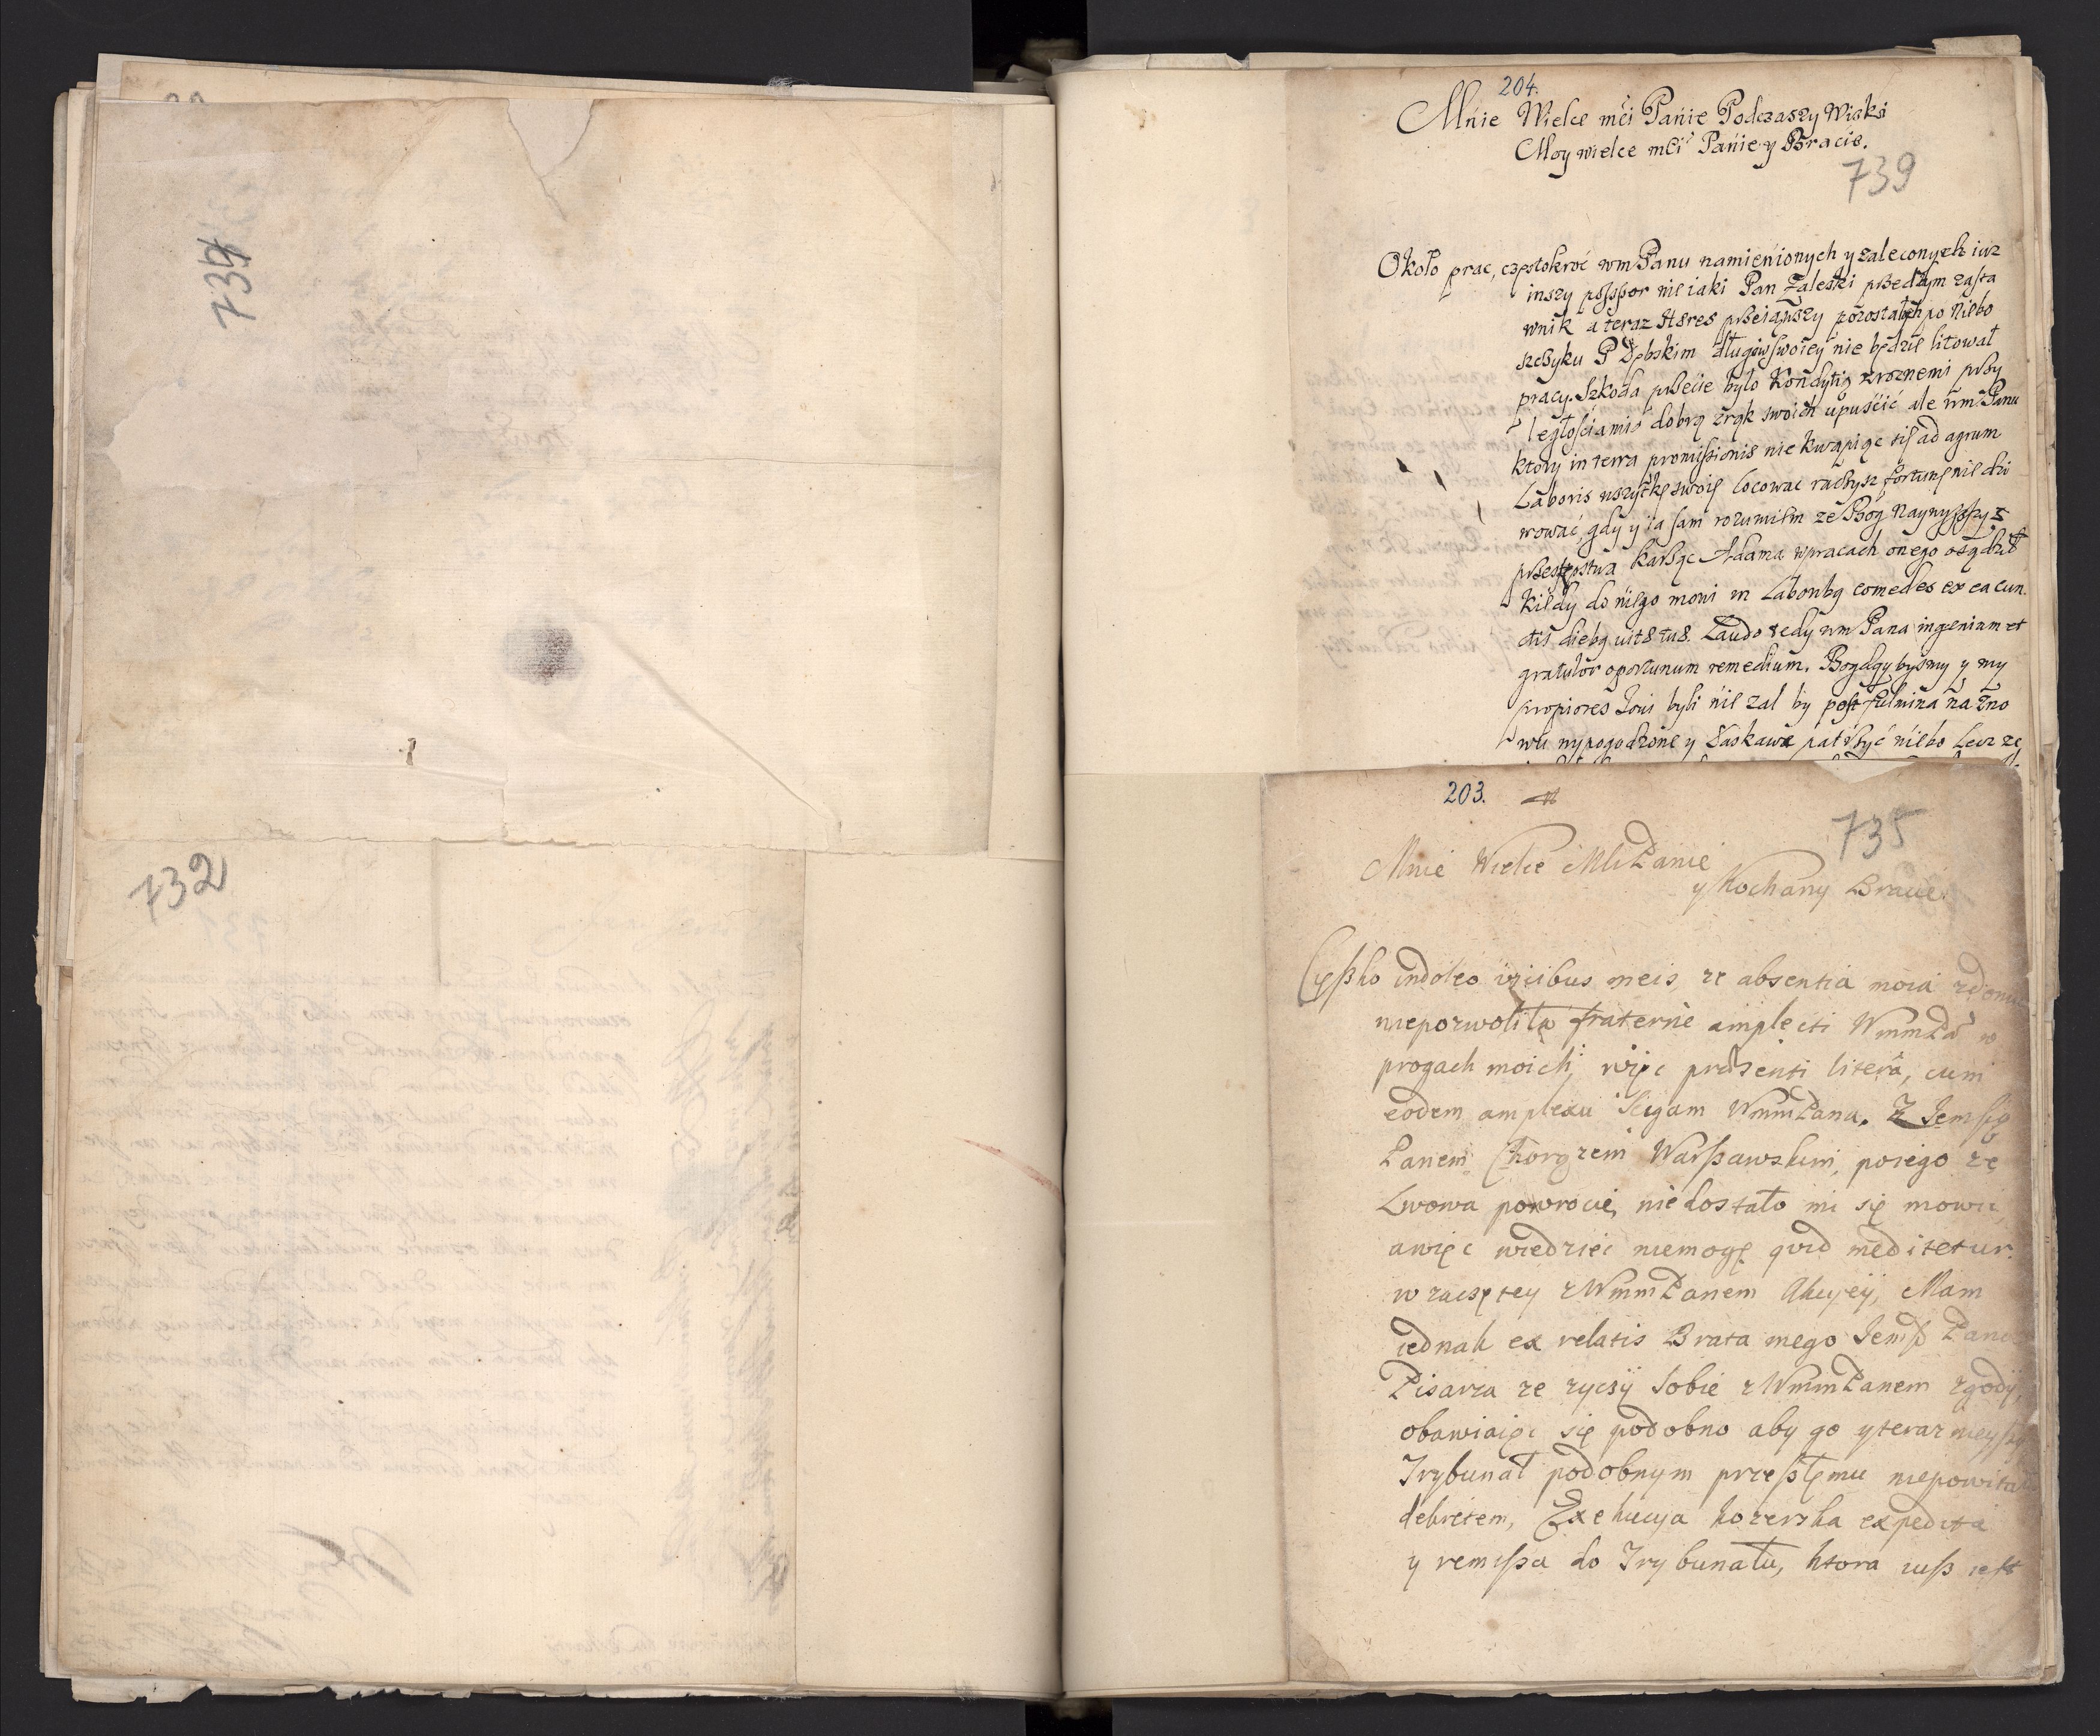 734
732
204.
Mnie Wielce mci Panie Podczaszy Wiski
Moy wielce mci Panie y Bracie.
739
Około prac, częstokroć wm Panu namienionych y zaleconych iuz
inszy possessor nie iaki Pan Zaleski przedtym zasta
wnik a teraz Hæres przeiąwszy pozostałych po Niebo
szczyku P Dębskim długow swoiey nie będzie litował
pracy. Szkoda przecie było Kondytią z roznemi przy
ległosciamis dobrą z rąk swoich upuścić ale wm Panu
ktory in terra promissionis nie kwapiąc się ad agrum
Laboris wszytkę swoię locować raczysz fortunę nie dzi
wować, gdy y ia sam rozumiem ze Bog Naywyszszy z
przestępstwa karząc Adama w pracach onego osądził
Kiedy do niego mowi in Laboribq comedes ex ea cun
ctis diebq vitæ tuæ. Laudo tedy wm Pana ingenium et
gratulor oportunum remedium. Bogday bysmy y my
propiores Iovi byli nie zal by post fulmina na zno
wu wypogodzone y łaskawe patrzyć niebo Lecz ze
203.
735
Mnie Wielce Mci Panie
y Kochany Bracie.
Cięszko indoleo vicibus meis, ze absentia moia z domu
niepozwoliła fraterne amplecti WmmPa w
progach moich, więc præsenti litera, cum
eodem amplexu scigam WmmPana. Z Iemscią
Panem Chorązem Warszawskim, poiego ze
Lwowa powrocie, nie dostało mi się mowic,
a więc wiedziec niemogę qvid meditetur
w zaczętey z WmmPanem Akcyey, Mam
iednak ex relatis Brata mego Iemsc Pana
Pisarza ze zyczy sobie z WmmPanem zgody,
obawiaięc się podobno aby go y teraz nieyszy
Trybunał podobnym przeszłemu niepowitał
dekretem, Exekucya kozerska expedita
y remissa do Trybunału, ktora iusz iest